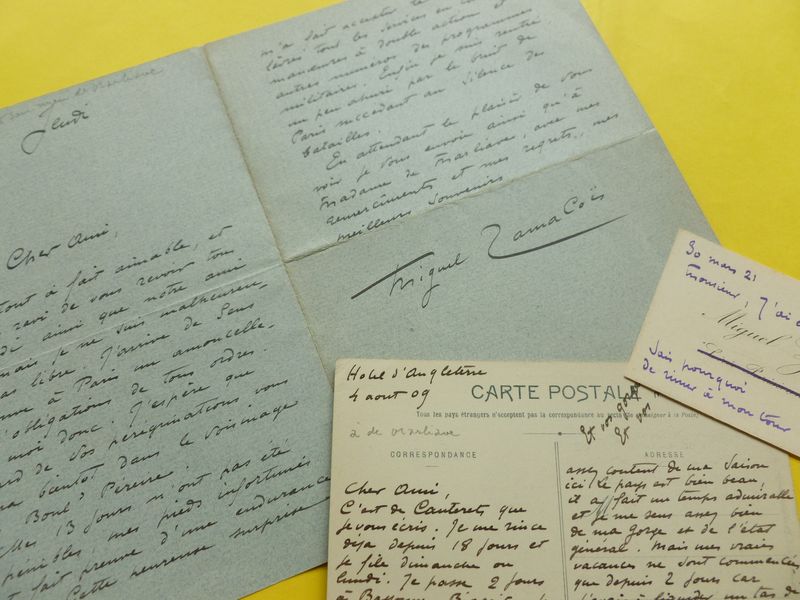 Jeudi
Cher Ami,
tout à fait aimable, et
ravi de vous revoir tous
ainsi que notre ami
mais je ne suis malheureu-
pas libre. J'arrive de Sens
à Paris un amoncelle-
d'obligations de tous ordres.
moi donc. J'espère que
de vos pérégrinations vous
bientôt dans le voisinage
Boul^d Péreire.
13 jours n'ont pas été
pénibles mes pieds infortunés
fait preuve d'une endurance
Cette heureuse surprise
m'a fait accepter
tout les services en
manœuvres à double action et
autres numéros des programmes
militaires. Enfin je suis rentré
un peu ahuri par le bruit de
Paris succédant au silence des
batailles.
En attendant le plaisir de vous
voir je vous envoie ainsi qu'à
Madame de Marliave, avec mes
remerciments et mes regrets, mes
meilleurs souvenirs
Miguel Zamacoïs
30 mars 21
Monsieur, J'ai
Miguel
Sais pourquoi
de rimer à mon tour
Hotel d'Angleterre
4 aout 09
CARTE POSTALE
Tous les pays étrangers n'acceptent pas la correspondance au recto (se renseigner à la Poste)
à de Marliave
Et vos
CORRESPONDANCE
Cher Ami,
C'est de Cauterets que
je vous écris. Je me rince
déja depuis 18 jours et
je file dimanche ou
lundi. Je passe 2 jours
à
ADRESSE
assez content de ma saison
ici. Le pays est bien beau,
il a fait un temps admirable
et je me sens assez bien
de ma gorge et de l'état
général. Mais mes vraies
vacances ne sont commencées
que depuis 2 jours car
à liquider un tas de